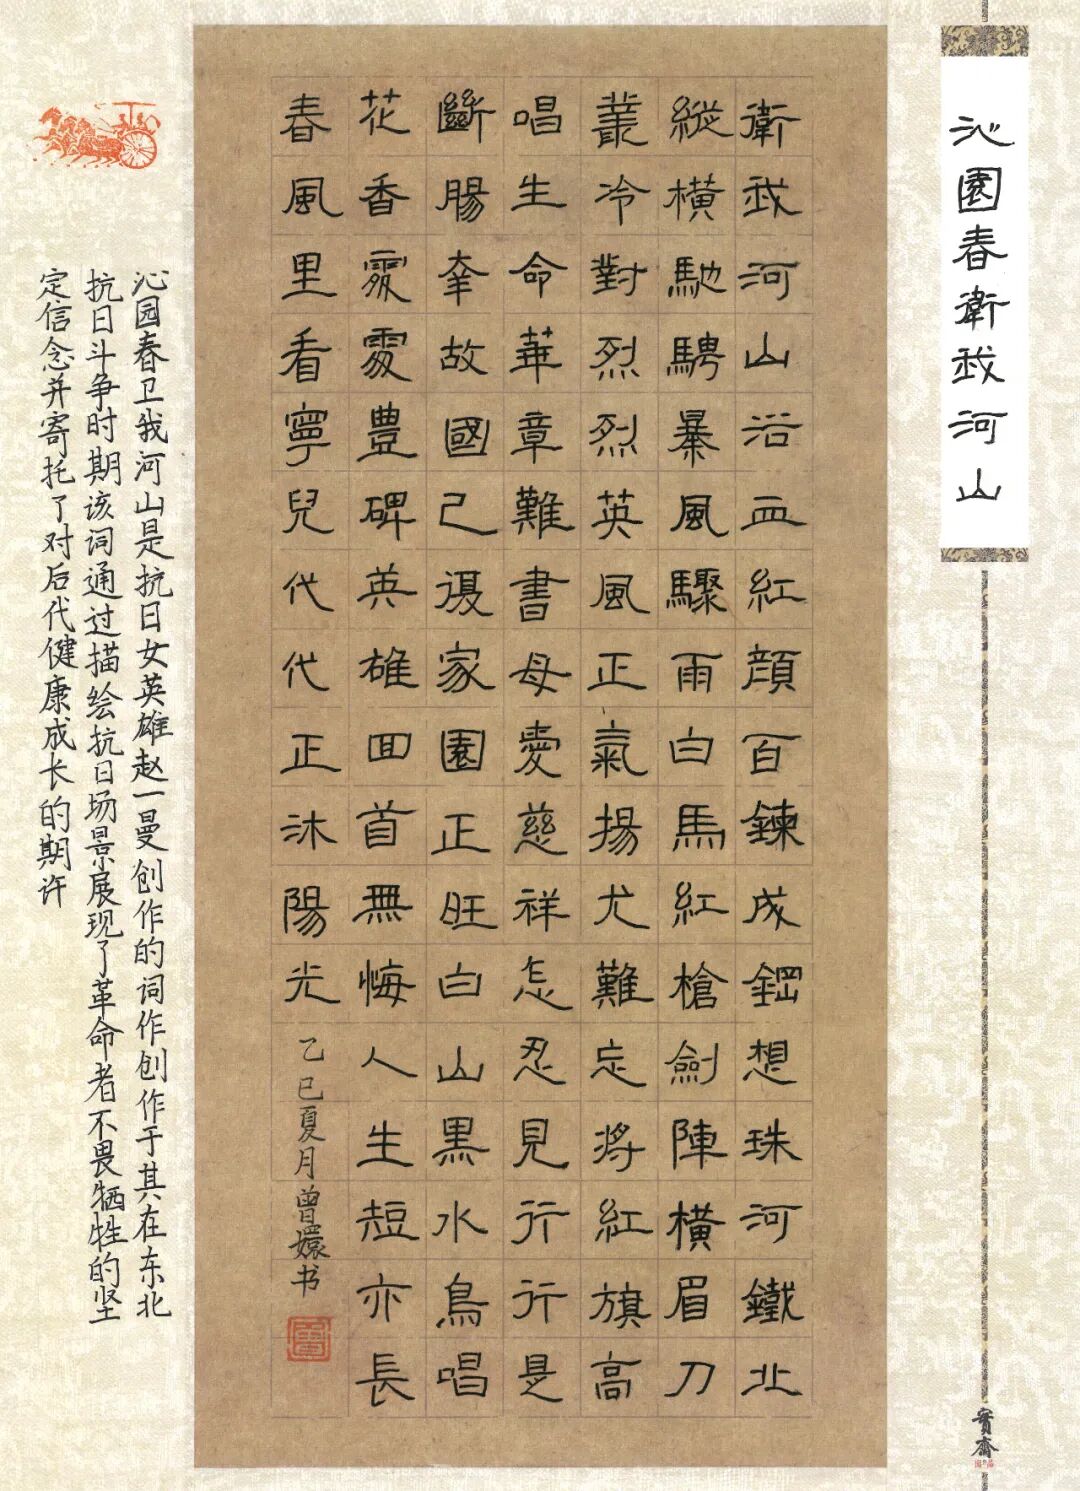 沁園春衛我河山
衛我河山浴血紅顔百鍊成鋼想珠河鐵北
縱橫馳騁暴風驟雨白馬紅槍劍陣橫眉刀
叢冷對烈烈英風正氣揚尤難忘將紅旗高
唱生命華章難書母愛慈祥怎忍見行行是
斷腸幸故國已復家園正旺白山黑水鳥唱
花香處處豊碑英雄回首無悔人生短亦長
春風里看寧兒代代正沐陽光
乙巳夏月曾嬛书
沁园春卫我河山是抗日女英雄赵一曼创作的词作创作于其在东北
抗日斗争时期该词通过描绘抗日场景展现了革命者不畏牺牲的坚
定信念并寄托了对后代健康成长的期许